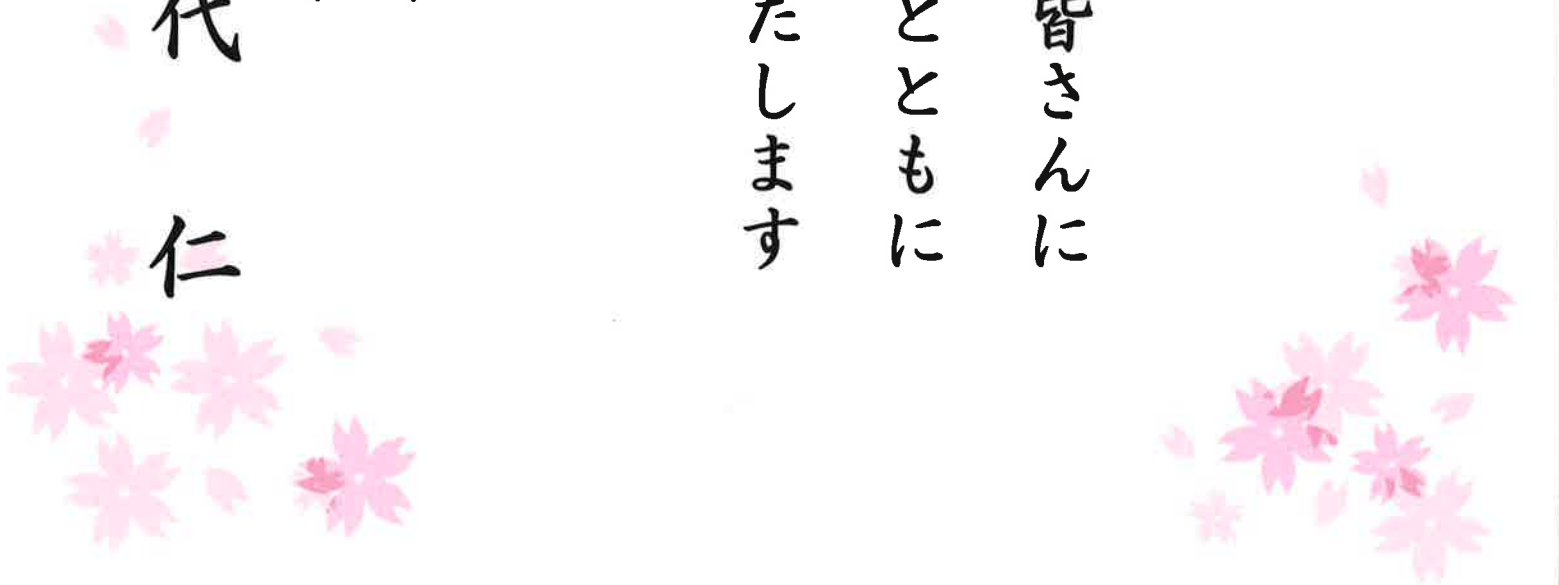 皆さんに
とともに
たします
代 仁